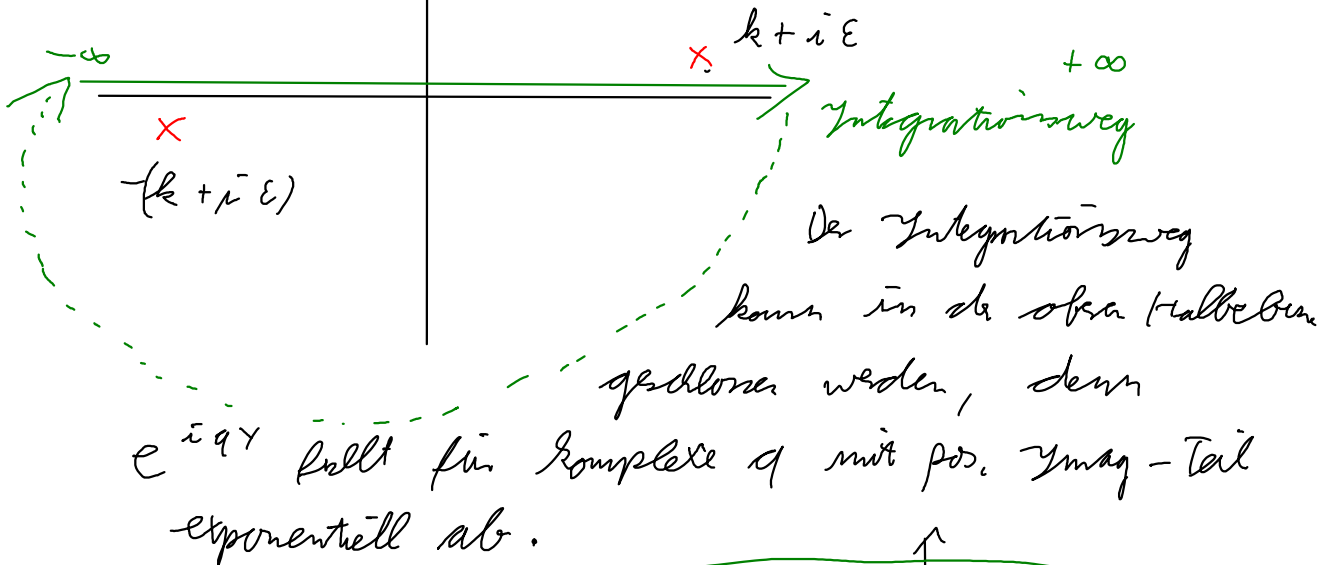 k + i ε
-∞
+ ∞
Integrationsweg
-(k + i ε)
Der Integrationsweg
kann in der oberen Halbebene
geschlossen werden, denn
e^{iqr} fällt für komplexe q mit pos. Imag-Teil
exponentiell ab.